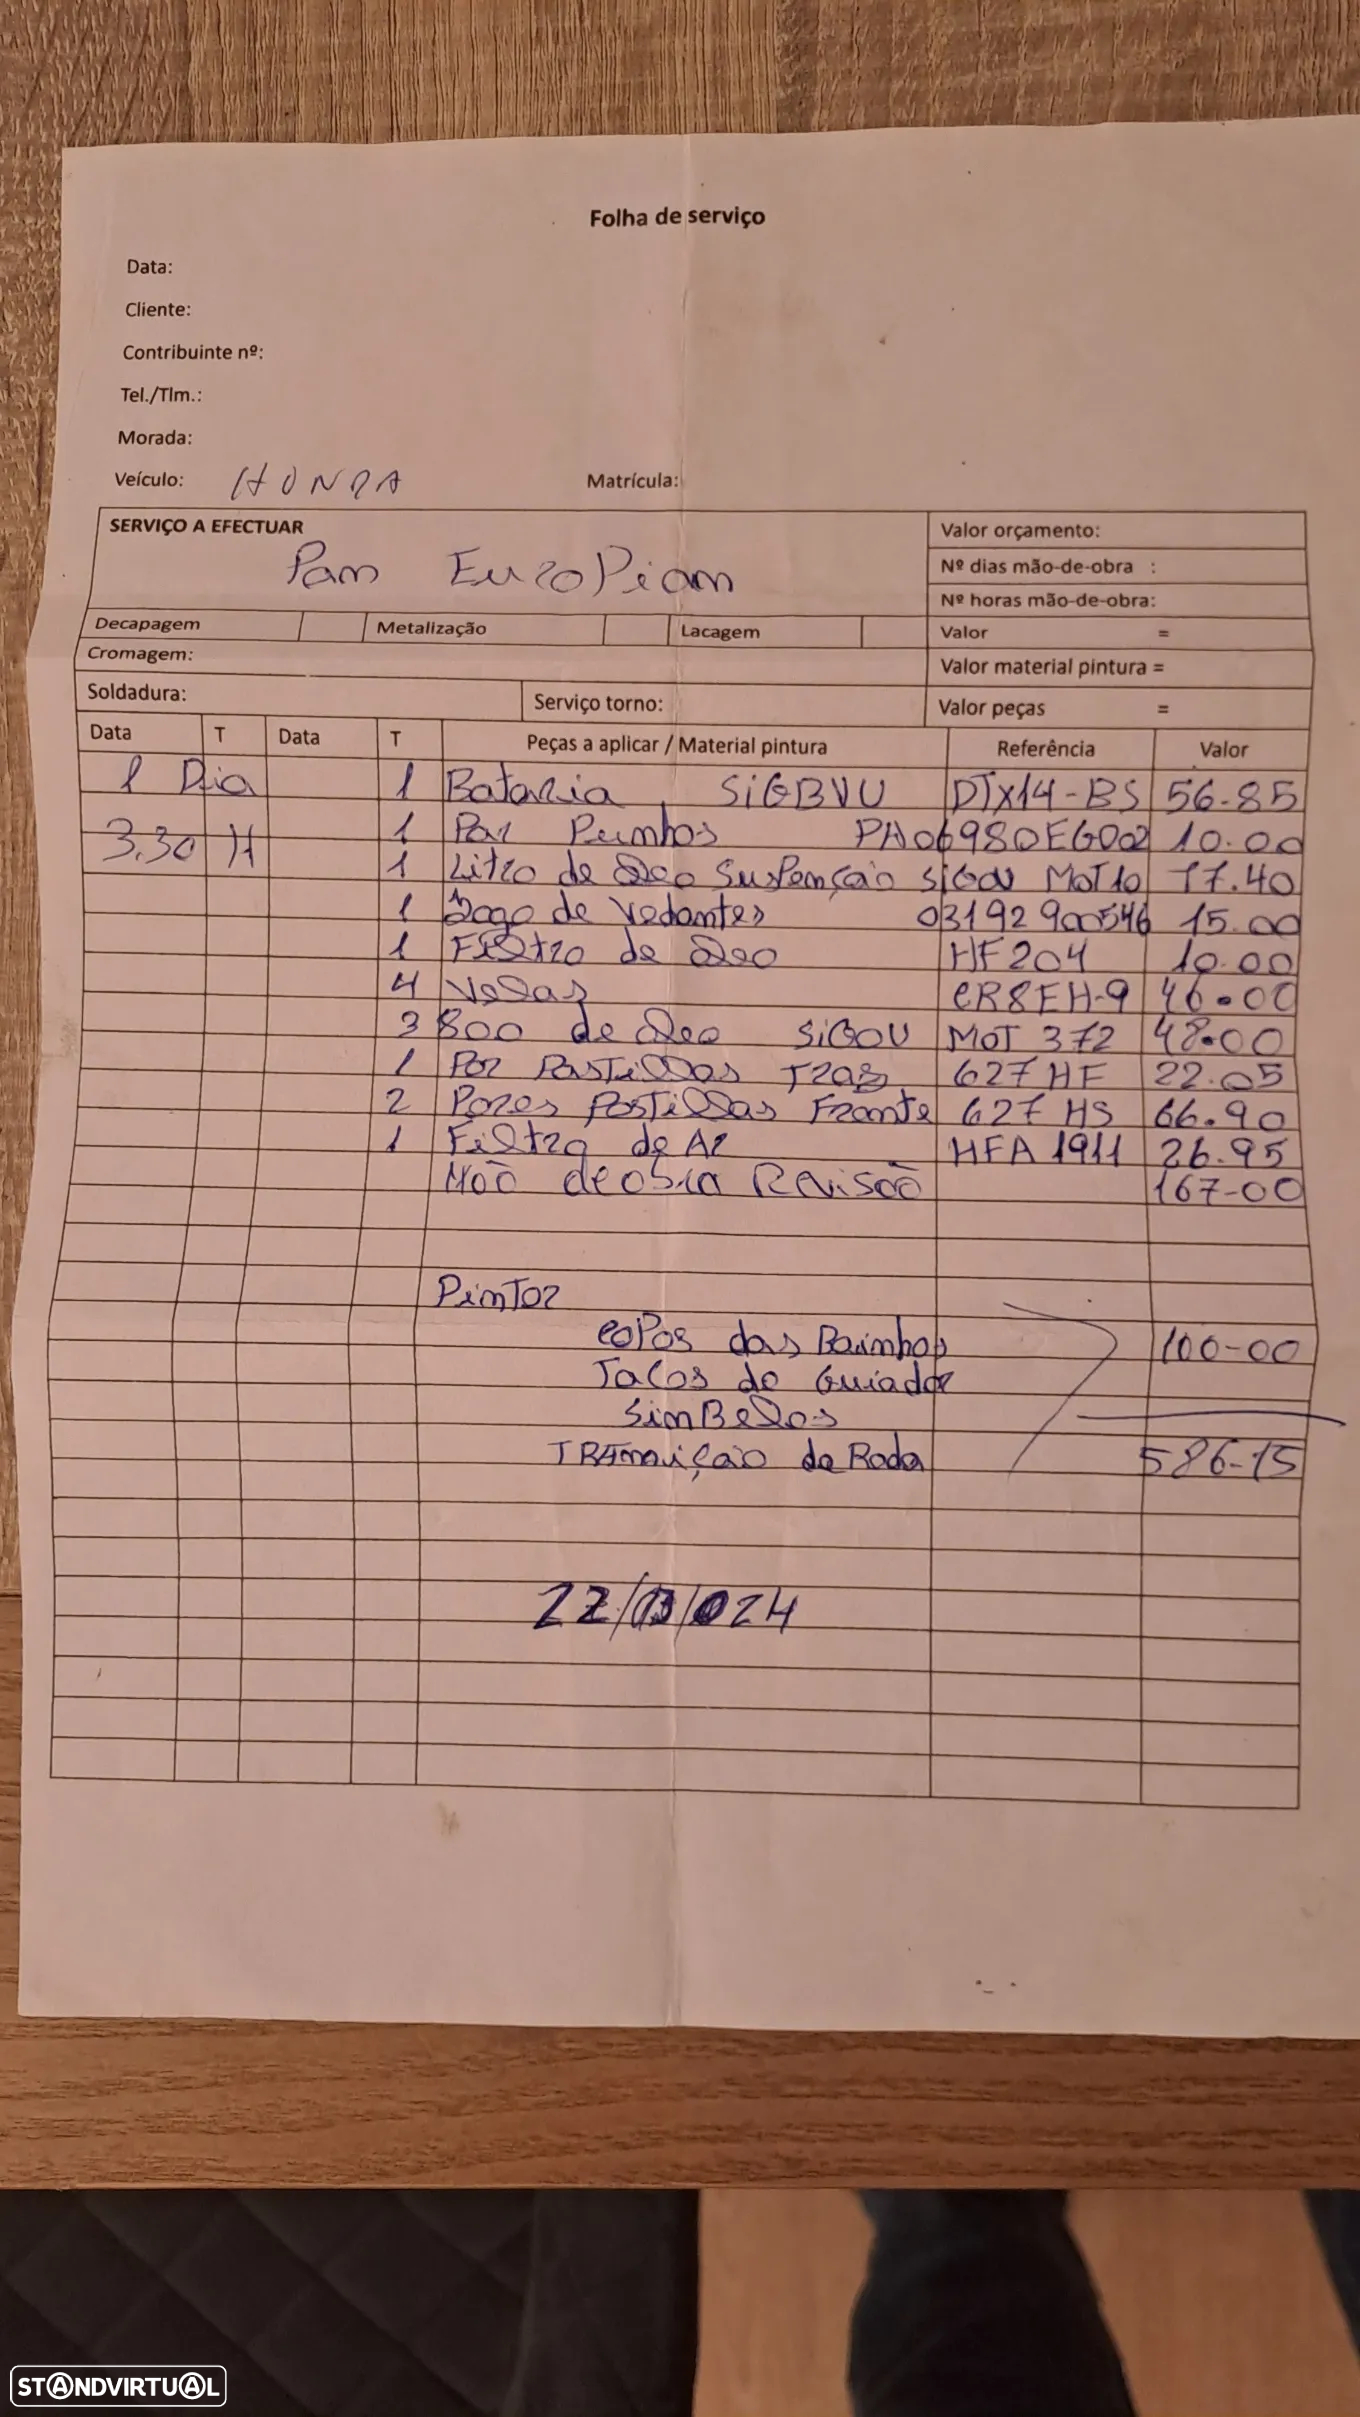 Folha de serviço
Data:
Cliente:
Contribuinte nº:
Tel./Tlm.:
Morada:
Veículo: HONDA Matrícula:
SERVIÇO A EFECTUAR Valor orçamento:
Pan EuroPiam Nº dias mão-de-obra :
Nº horas mão-de-obra:
Decapagem Metalização Lacagem Valor =
Cromagem: Valor material pintura =
Soldadura: Serviço torno: Valor peças =
Data T Data T Peças a aplicar / Material pintura Referência Valor
1 Dia 1 Bataria DTX14-BS 56.85
3.30 H 1 Par Punhos PA06980EG002 10.00
1 Litro de Oleo Suspenção MOT10 17.40
1 Jogo de Vedantes 03192900546 15.00
1 Filtro de Oleo HF204 10.00
4 Velas CR8EH-9 46.00
3 800 de Oleo MOT 372 48.00
1 Par Pastillas Tras 627 HF 22.05
2 Pares Pastillas Frente 627 HS 66.90
1 Filtro de Ar HFA 1911 26.95
Mão de obra Revisão 167-00
Pintor
copos das Bainhas 100-00
Tacos do Guiador
SimBolos
da Roda 586-15
024
STANDVIRTUAL